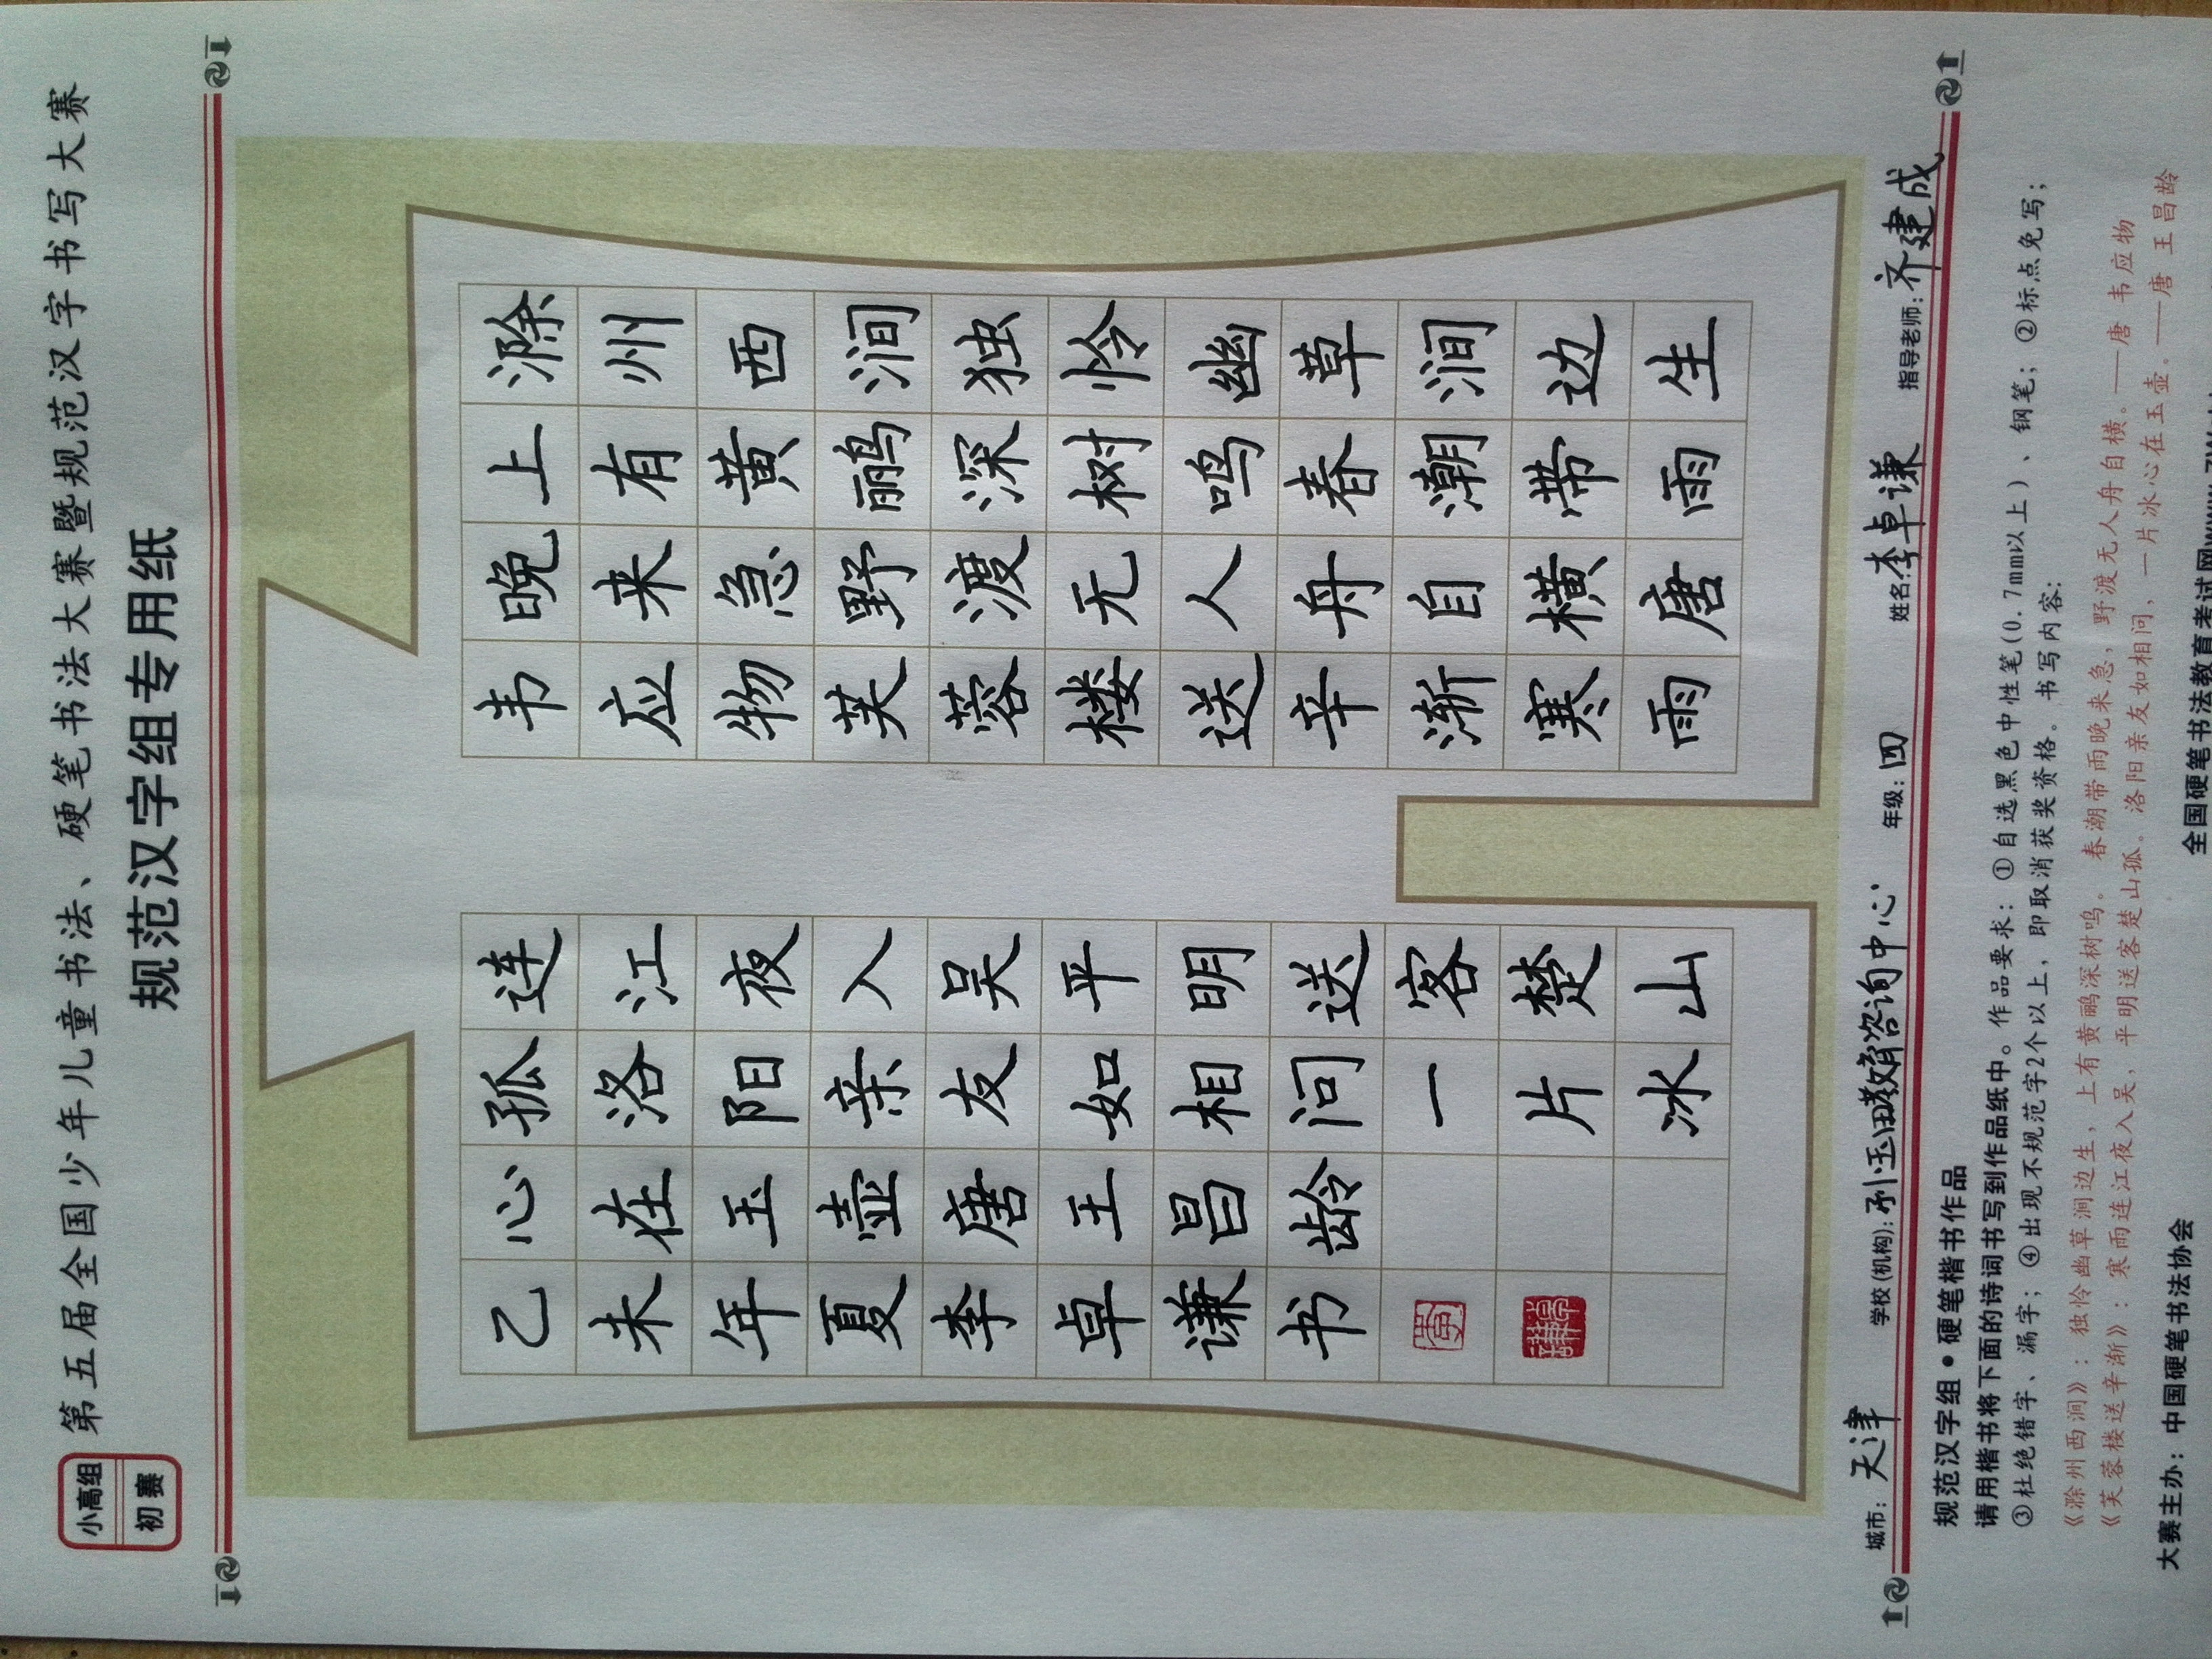 小高组
初赛
第五届全国少年儿童书法、硬笔书法大赛暨规范汉字书写大赛
规范汉字组专用纸
滁州西涧独怜幽草涧边生
上有黄鹂深树鸣春潮带雨
晚来急野渡无人舟自横唐
韦应物芙蓉楼送辛渐寒雨
连江夜入吴平明送客楚山
孤洛阳亲友如相问一片冰
心在玉壶唐王昌龄
乙未年夏李卓谦书
城市：天津 学校(机构):玉田教育咨询中心 年级:四 姓名:李卓谦 指导老师:齐建成
规范汉字组●硬笔楷书作品
请用楷书将下面的诗词书写到作品纸中。作品要求：①自选黑色中性笔(0.7mm以上)、钢笔；②标点免写；
③杜绝错字、漏字；④出现不规范字2个以上，即取消获奖资格。书写内容:
《滁州西涧》：独怜幽草涧边生，上有黄鹂深树鸣。春潮带雨晚来急，野渡无人舟自横。——唐 韦应物
《芙蓉楼送辛渐》：寒雨连江夜入吴，平明送客楚山孤。洛阳亲友如相问，一片冰心在玉壶。——唐 王昌龄
大赛主办：中国硬笔书法协会
全国硬笔书法教育考试网